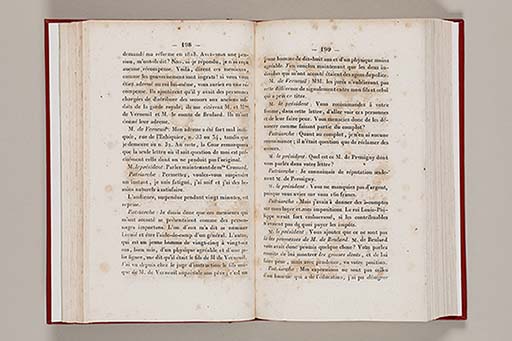 — 198 —
demandé ma réforme en 1828. Avez-vous une pen-
sion, m'ont-ils dit? Non, ai-je répondu, je n'ai reçu
aucune récompense. Voilà, dirent ces messieurs,
comme les gouvernemens sont ingrats! si vous vous
étiez adressé au roi lui-même, vous auriez eu une ré-
compense. Ils ajoutèrent qu'il y avait des personnes
chargées de distribuer des secours aux anciens sol-
dats de la garde royale; ils me citèrent M. et Mme
de Verneuil et M. le comte de Boulard. Ils m'ont
donné leur adresse.
M. de Verneuil: Mon adresse a été fort mal indi-
quée, rue de l'Échiquier, n. 33 ou 34, tandis que
je demeure au n. 31. Au reste, la Cour remarquera
que la seule lettre où il soit question de moi est pré-
cisément celle dont on ne produit pas l'original.
M. le président: Parlez maintenant de Mme Cramard.
Patriarche: Permettez, voulez-vous suspendre
un instant, je suis fatigué, j'ai soif et j'ai des be-
soins naturels à satisfaire.
L'audience, suspendue pendant vingt minutes, est
reprise.
Patriarche: Je disais donc que ces messieurs qui
m'ont accosté se présentaient comme des person-
nages importans. L'un d'eux m'a dit se nommer
et être l'aide-de-camp d'un général. L'autre,
qui est un jeune homme de vingt-cinq à vingt-six
ans, bon mis, d'un physique agréable et d'une jo-
lie figure, me dit qu'il était le fils de M. de Verneuil.
J'ai vu depuis chez le juge d'instruction le fils uni-
que de M. de Verneuil
— 199 —
jeune homme de dix-huit ans et d'un physique moins
agréable. J'en conclus maintenant que les deux in-
dividus qui m'ont accosté étaient des agens de police.
M. de Verneuil: MM. les jurés n'oublieront pas
cette différence de signalement entre mon fils et celui
qui a pris ce titre.
M. le président: Vous recommandez à votre
femme, dans cette lettre, d'aller voir ces personnes
et de leur faire peur. Vous menaciez donc de les dé-
noncer comme faisant partie du complot?
Patriarche: Quant au complot, je n'en ai aucune
connaissance; il n'était question que de réclamer des
secours.
M. le président: Quel est ce M. de Permigny dont
vous parlez dans votre lettre?
Patriarche: Je connaissais de réputation seule-
ment M. de Permigny.
M. le président: Vous ne manquiez pas d'argent,
puisque vous aviez une
Patriarche: Mais j'avais à donner des à-comptes
sur mon loyer et mes impositions. Le roi Louis-Phi-
lippe serait fort embarrassé, si les contribuables
n'avaient pas de quoi payer les impôts.
M. le président: Vous ajoutez que ce ne sont pas
là les promesses de M. de Boulard. M. de Boulard
vous avait donc promis quelque chose? Vous parlez
ensuite de lui montrer les grosses dents, et de lui
faire peur, mais avec prudence, vu votre position.
Patriarche: Mes expressions ne sont pas celles
d'un homme qui a de l'éducation, j'ai pu désigner